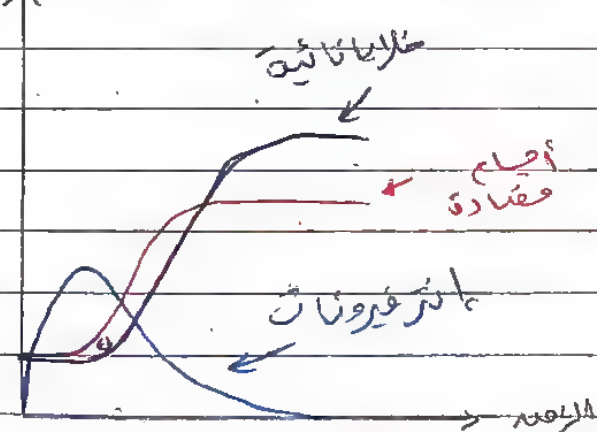 خلايا تائية
أجسام
مضادة
إنترفيرونات
الزمن